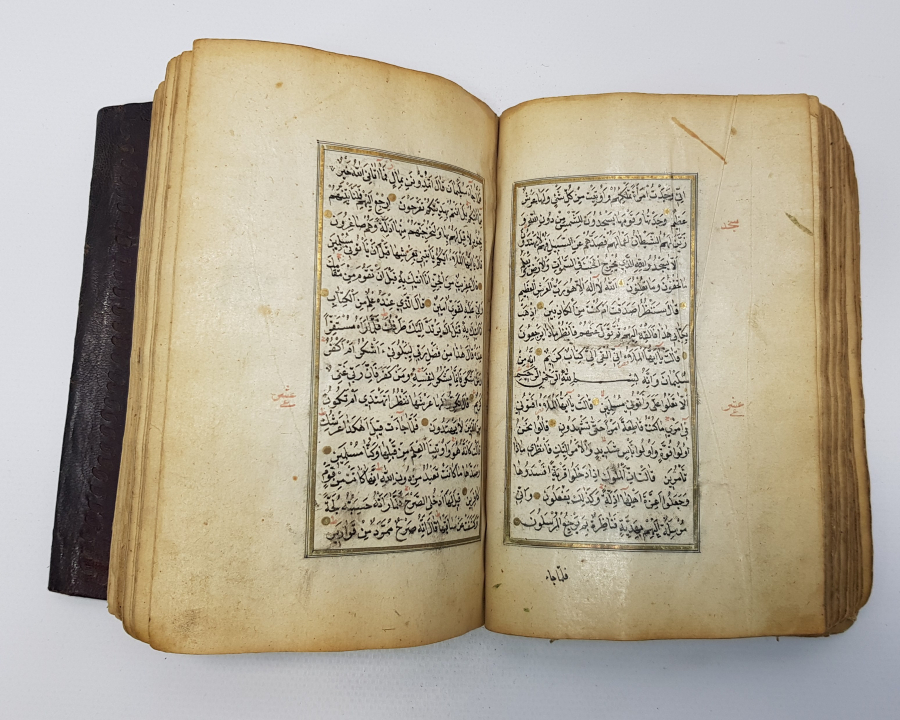 إني وجدت امرأة تملكهم وأوتيت من كل شيء ولها عرش
عظيم وجدتها وقومها يسجدون للشمس من دون الله و
زين لهم الشيطان أعمالهم فصدهم عن السبيل فهم لا يهتدون
ألا يسجدوا لله الذي يخرج الخبء في السموات والأرض ويعلم
ما تخفون وما تعلنون الله لا إله إلا هو رب العرش العظيم
قال سننظر أصدقت أم كنت من الكاذبين اذهب
بكتابي هذا فألقه إليهم ثم تول عنهم فانظر ماذا يرجعون
قالت يا أيها الملأ إني ألقي إلي كتاب كريم إنه من
سليمان وإنه بسم الله الرحمن الرحيم
ألا تعلوا علي وأتوني مسلمين قالت يا أيها الملأ أفتوني
في أمري ما كنت قاطعة أمرا حتى تشهدون قالوا نحن
أولوا قوة وأولوا بأس شديد والأمر إليك فانظري ماذا
تأمرين قالت إن الملوك إذا دخلوا قرية أفسدوها
وجعلوا أعزة أهلها أذلة وكذلك يفعلون وإني
مرسلة إليهم بهدية فناظرة بم يرجع المرسلون
فلما جاء
سجده
عشر
فلما جاء سليمان قال أتمدونن بمال فما آتاني الله خير
مما آتاكم بل أنتم بهديتكم تفرحون ارجع إليهم فلنأتينهم
بجنود لا قبل لهم بها ولنخرجنهم منها أذلة وهم صاغرون
قال يا أيها الملأ أيكم يأتيني بعرشها قبل أن يأتوني مسلمين
قال عفريت من الجن أنا آتيك به قبل أن تقوم من مقامك
وإني عليه لقوي أمين قال الذي عنده علم من الكتاب
أنا آتيك به قبل أن يرتد إليك طرفك فلما رآه مستقرا
عنده قال هذا من فضل ربي ليبلوني أأشكر أم أكفر
ومن شكر فإنما يشكر لنفسه ومن كفر فإن ربي غني
كريم قال نكروا لها عرشها ننظر أتهتدي أم تكون
من الذين لا يهتدون فلما جاءت قيل أهكذا عرشك
قالت كأنه هو وأوتينا العلم من قبلها وكنا مسلمين
وصدها ما كانت تعبد من دون الله إنها كانت من قوم
كافرين قيل لها ادخلي الصرح فلما رأته حسبته لجة
وكشفت عن ساقيها قال إنه صرح ممرد من قوارير
عشر